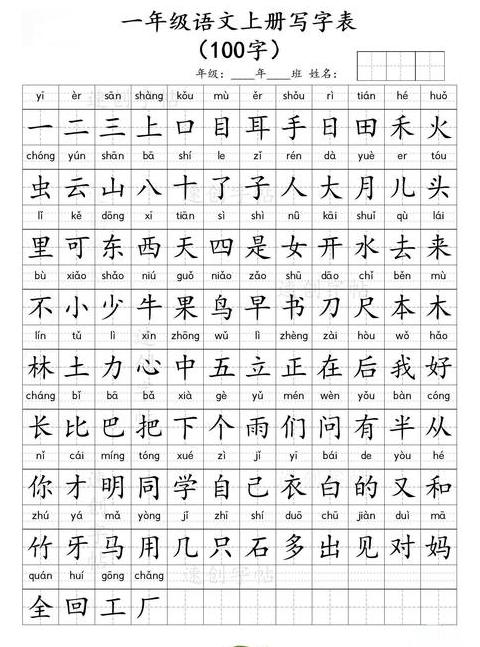 一年级语文上册写字表
（100字）
年级：____年____班 姓名：
yī èr sān shàng kǒu mù ěr shǒu rì tián hé huǒ
一 二 三 上 口 目 耳 手 日 田 禾 火
chóng yún shān bā shí le zǐ rén dà yuè er tóu
虫 云 山 八 十 了 子 人 大 月 儿 头
lǐ kě dōng xi tiān sì shì nǚ kāi shuǐ qù lái
里 可 东 西 天 四 是 女 开 水 去 来
bù xiǎo shǎo niú guǒ niǎo zǎo shū dāo chǐ běn mù
不 小 少 牛 果 鸟 早 书 刀 尺 本 木
lín tǔ lì xīn zhōng wǔ lì zhèng zài hòu wǒ hǎo
林 土 力 心 中 五 立 正 在 后 我 好
cháng bǐ bā bǎ xià gè yǔ mén wèn yǒu bàn cóng
长 比 巴 把 下 个 雨 们 问 有 半 从
nǐ cái míng tóng xué zì jǐ yī bái de yòu hé
你 才 明 同 学 自 己 衣 白 的 又 和
zhú yá mǎ yòng jǐ zhī shí duō chū jiàn duì mā
竹 牙 马 用 几 只 石 多 出 见 对 妈
quán huí gōng chǎng
全 回 工 厂